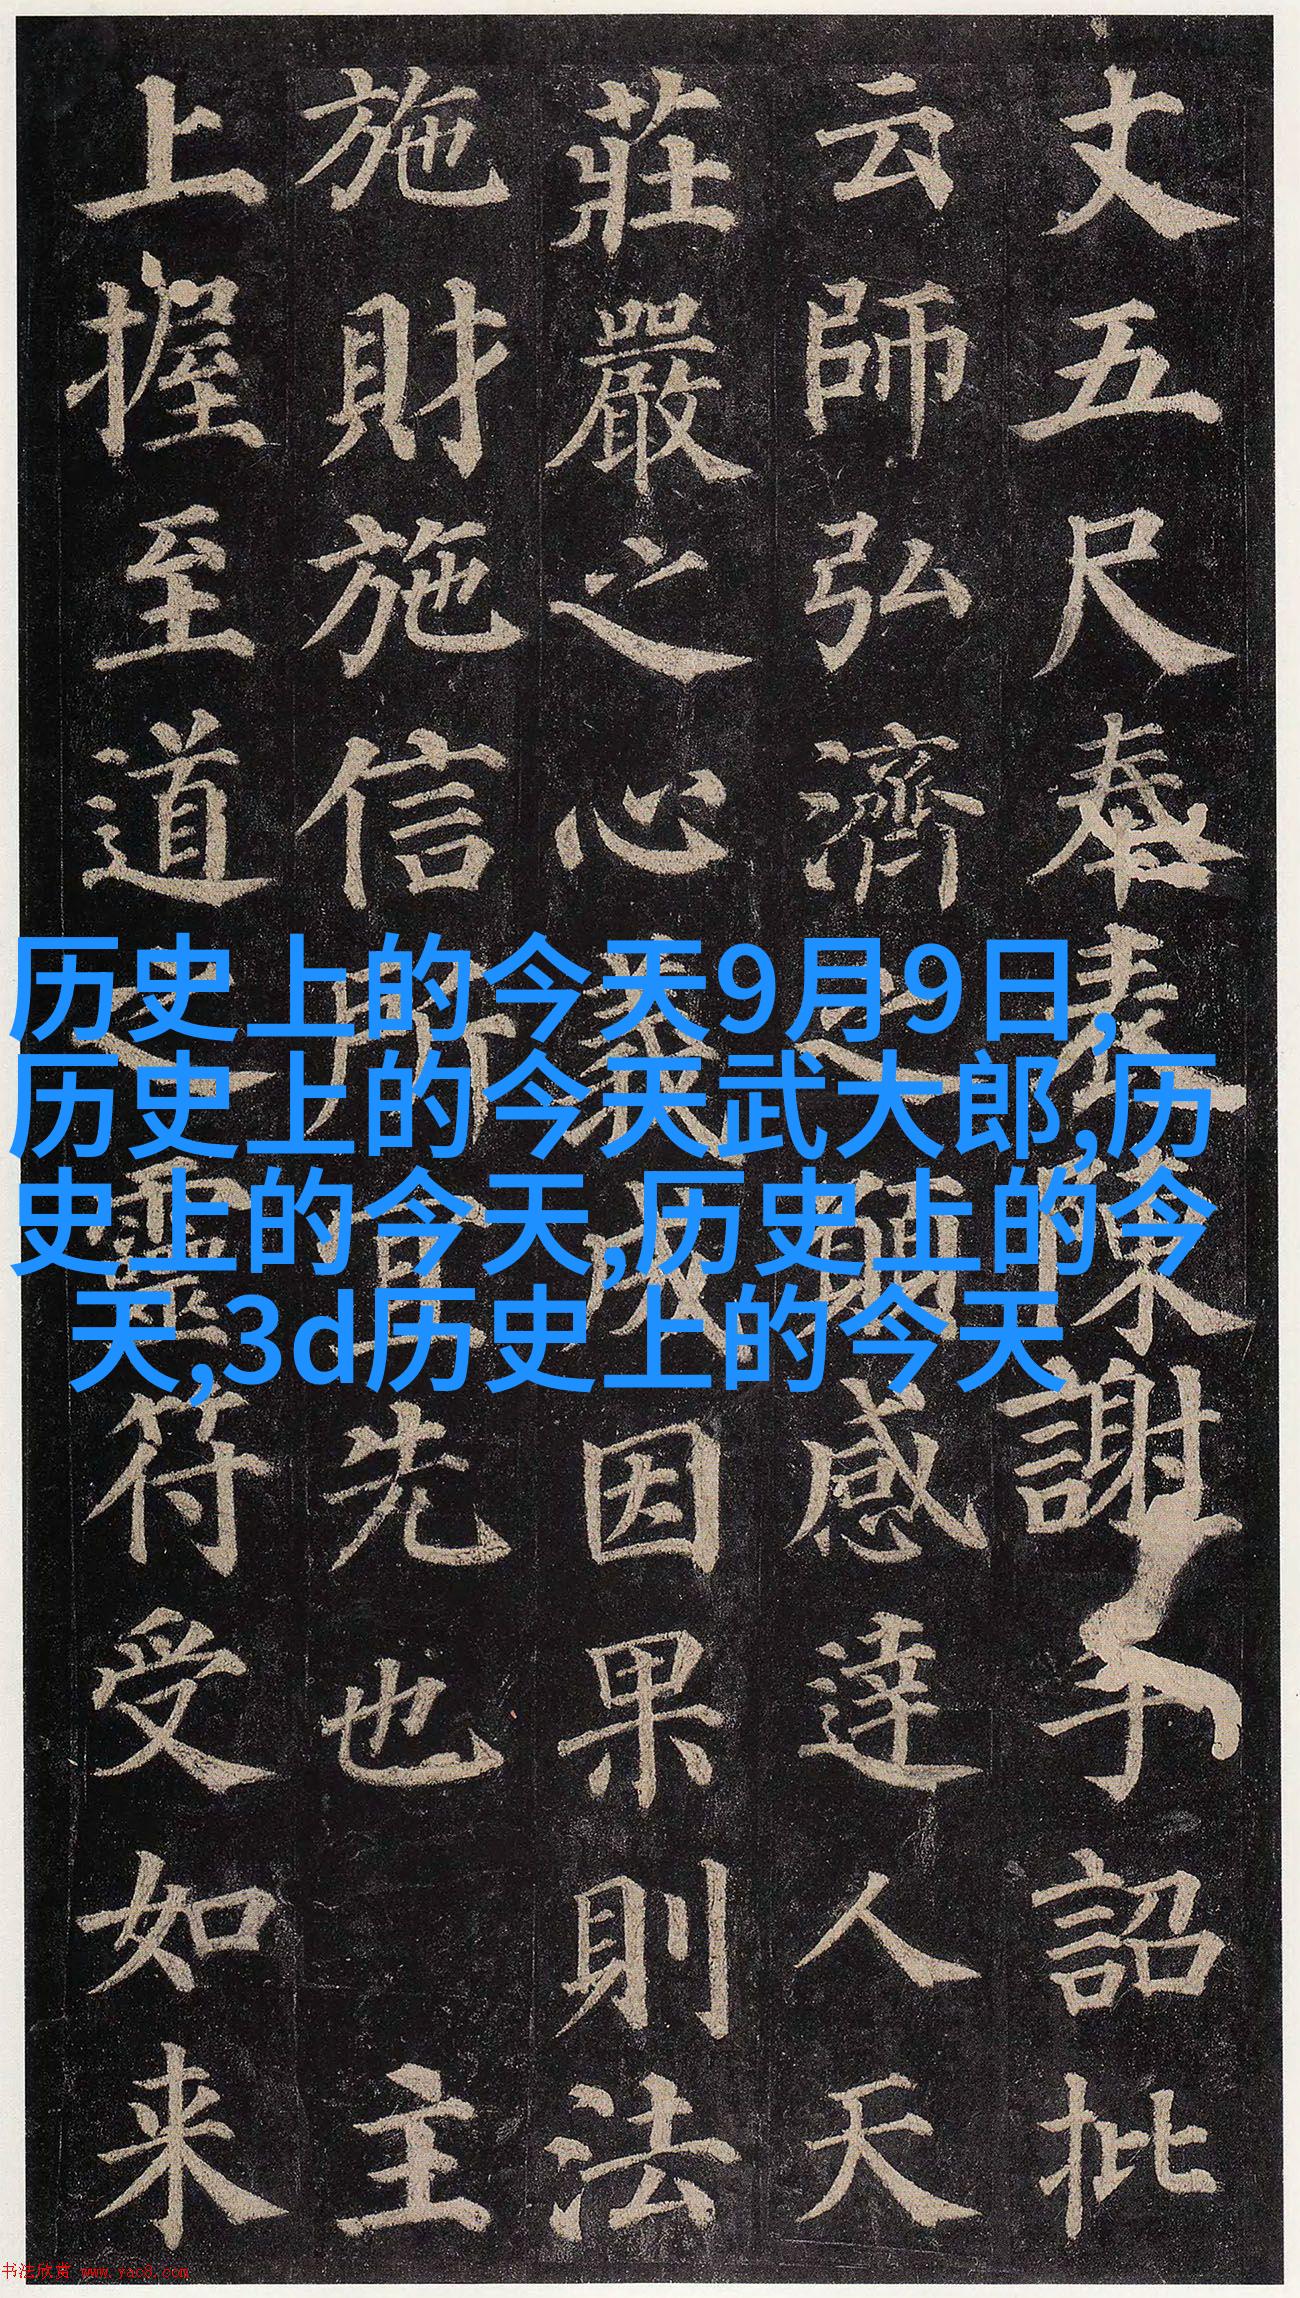 丈五尺奉表陳謝手詔批
云師弘濟之願感達人天
莊嚴之心義成因果則法
施財施信所宜先也 主
上握至道之靈符受如来
历史上的今天9月9日,
历史上的今天武大郎,历
史上的今天,历史上的今
天,3d历史上的今天
书法欣赏 www.yac8.com